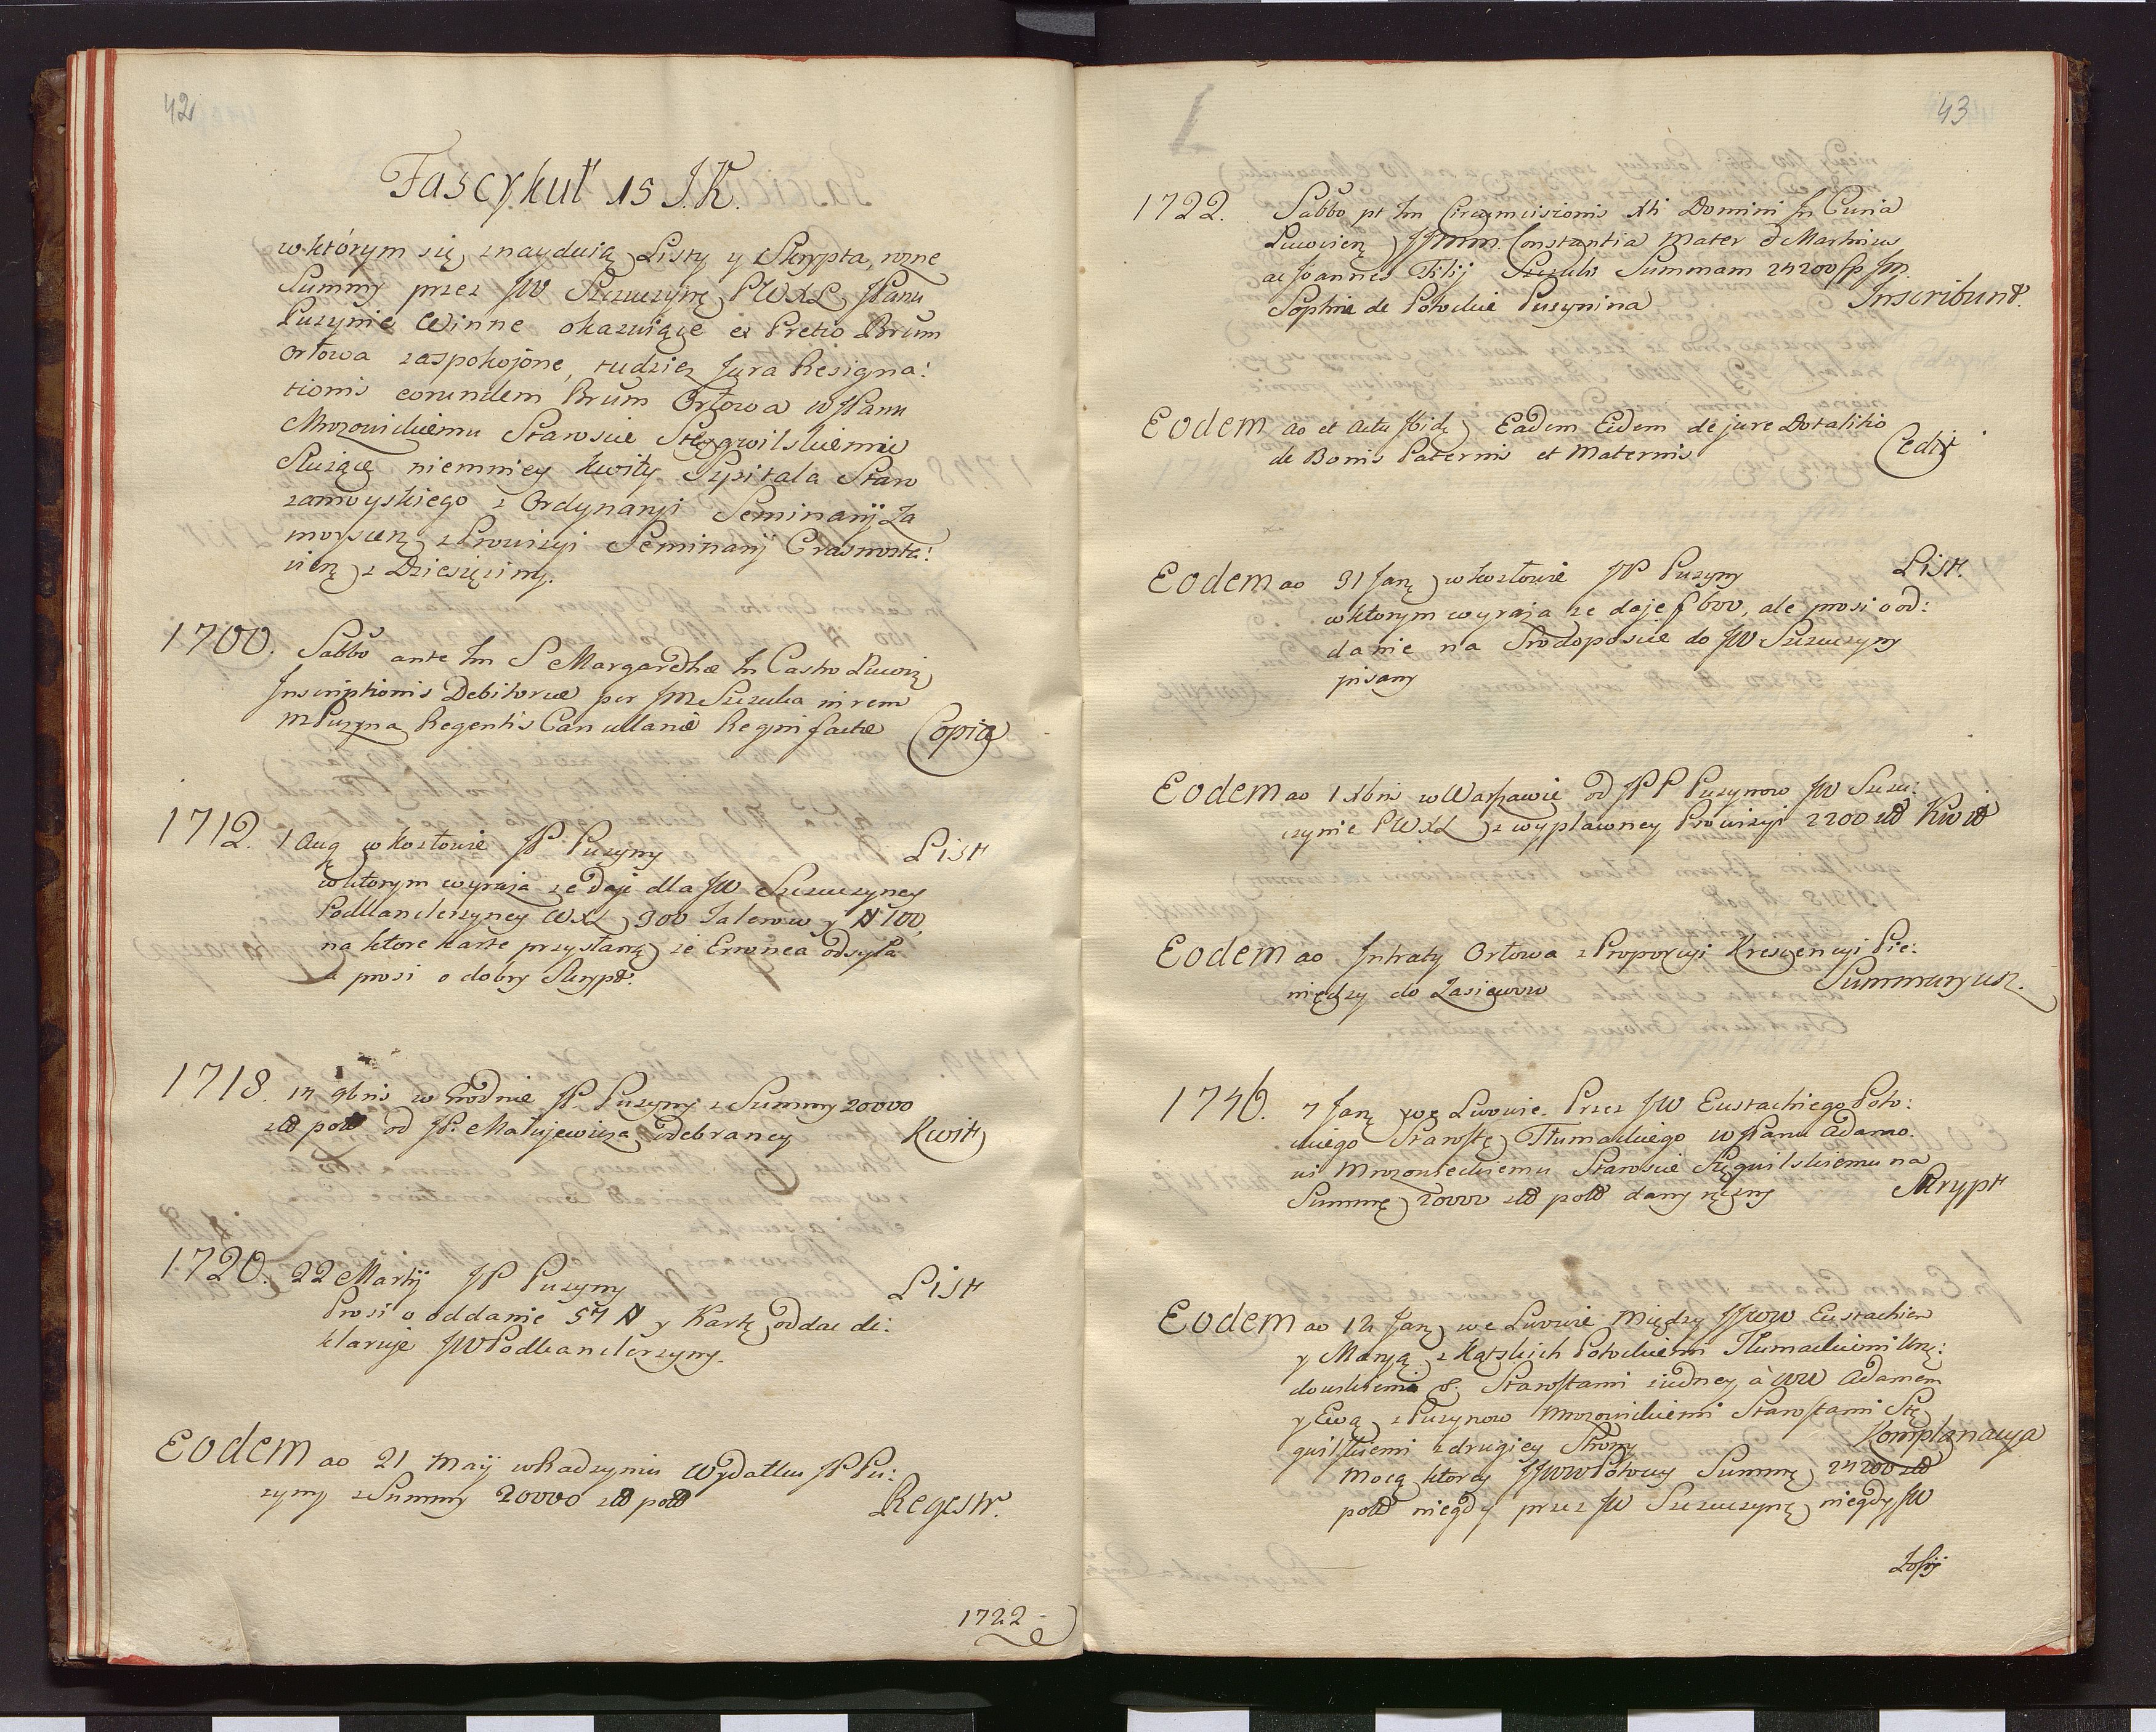 42
Fascykuł 15 J.K.
w którym się znayduią Listy y Skrypta, rożne
Summy przez JW Szczuczynę PWXL JPanu
Puzynie Winne okazuiące ex Pretio Brum
Orłowa zaspokojone, tudziez Jura Resigna:
tionis eorundem Brum Orłowa W JPanu
Mrozowickiemu Staroscie Stęgwilskiemu
Służące niemniey kwity Szpitala Staro
zamoyskiego z Ordynaryi Seminarij Za
moyscen z Prowizyi Seminarij Crasnosta:
vien z Dziesięciny.
1700. Sabbo ante Fm S Margarethæ In Castro Luwic
Inscriptionis Debitoriæ per JM Szczuka in rem
M Puzyna Regentis Cancellariæ Regni factæ Copia
1712. 1 Aug w Kozłowie JP. Puzyny List
w ktorym wyraża ze daje dla JW Szczuczyney
Podkanclerzyney WXL 300 Talerow y # 100,
na ktore karte przysłaną ze Erronea odsyła
a prosi o dobry Skrypt.
1718. 17 9bris w Grodnie JP. Puzyny z Summy 20000
zł pol od JP. Matujewicza odebraney Kwit
1720. 22 Martij JP Puzyny List
Prosi o oddanie 57 # y Kartę oddac de:
klaruje JW Podkanclerzyny.
Eodem ao 21 Maij w Radzyniu Wydatku JP Pu:
zyny z Summy 20000 zł pol Regestr.
1722
43
1722. Sabbo pt Fm Circumcisionis Xti Domini In Curia
Luwicien JJMM. Constantia Mater & Martinus
ac Joannes Filij Szczuka Summam 24200 fp JM.
Sophiæ de Potockie Puzynina Inscribunt.
Eodem ao et Actu Ibide Eadem Eidem de jure Dotalitio
de Bonis Paternis et Maternis Cedit
Eodem ao 31 Jan w kozłowie JP Puzyny List.
w ktorym wyraża ze daje f 600, ale prosi o od:
danie na Srodoposcie do JW Szczuczyny
pisany
Eodem ao 1 Xbris w Warszawie od JP P Puzynow JW Szczu:
czynie PWXL z wypłaconey Prowizyi 2200 zł Kwit
Eodem ao Intraty Orłowa z Proporcyi Krescencyi Pie:
niędzy do Zasiewow Summaryusz.
1746. 7 Jan we Lwowie. Przez JW Eustachiego Poto:
ckiego Starostę Tłumackiego W JPanu Adamo:
wi Mrozowickiemu Staroscie Stęgwilskiemu na
Summę 20000 zł pol dany ręczny Skrypt
Eodem ao 12 Jan we Lwowie Między JJWW Eustachim
y Maryą z Kątskich Potockiemi Tłumackiemi Urzę:
dowskiemi &. Starostami z iedney, à WW Adamem
y Ewą z Puzynow Mrozowickiemi Starostami Stę
gwilskiemi z drugiey Strony Komplanacya
Mocą ktorey JJWW Potoccy Summę 24200 zł
pol niegdy przez JW Szczuczynę niegdy JW
Zofij